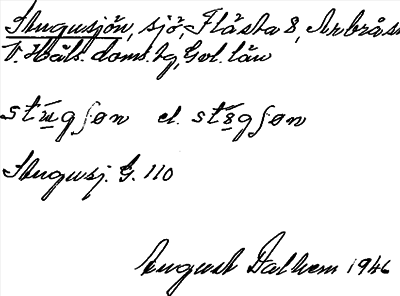 Stugusjön, sjö, Flästa 8, Arbrå s
V. Häls. doms. tg, Gvl. län
stugʃøn el. stɷgʃøn
Stugusj. G. 110
August Dalhem 1946